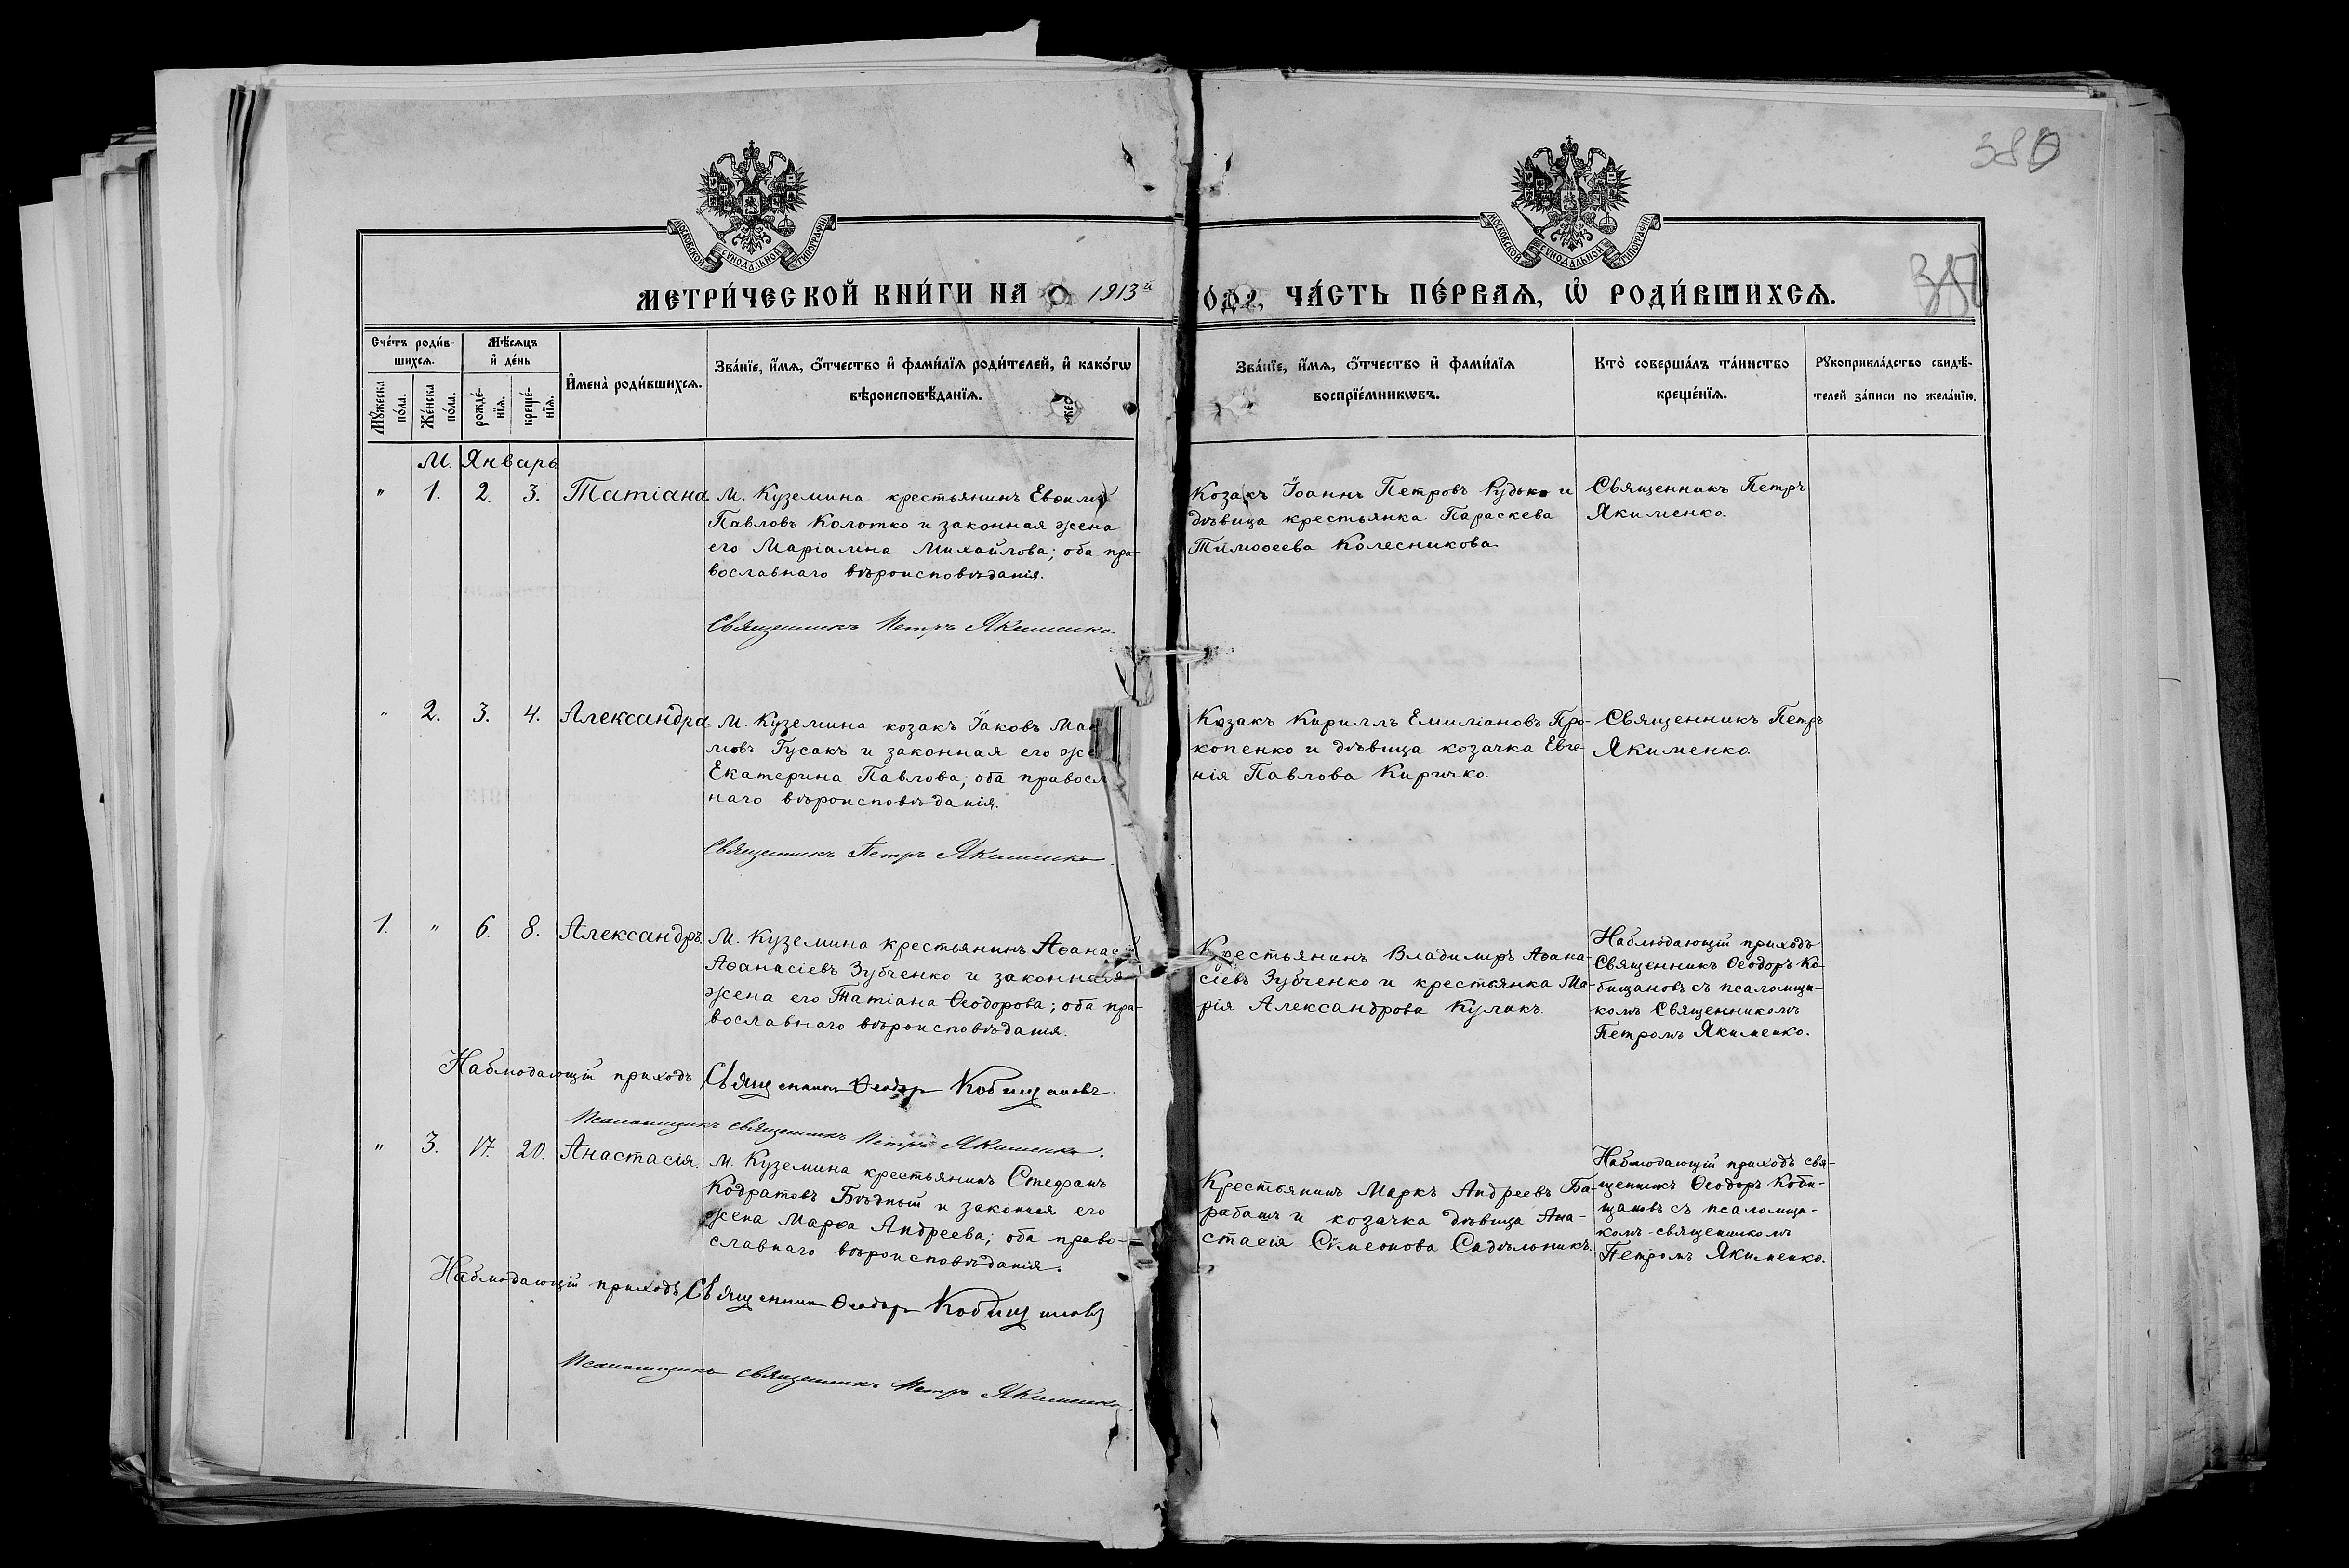 380
МОСКОВСКОЙ СѴНОДАЛЬНОЙ ТИПОГРАФІИ
МОСКОВСКОЙ СѴНОДАЛЬНОЙ ТИПОГРАФІИ
МЕТРИ́ЧЕСКОЙ КНИ́ГИ НА 1913й
ЧА́СТЬ ПЕ́РВАѦ, Ѡ҆ РОДИ́ВШИХСѦ.
Сче́тъ роди́в-
шихсѧ.
Мѣ́сѧцъ
и҆ де́нь
Мꙋ́жеска
по́ла.
Же́нска
по́ла.
рожде́-
нїѧ.
креще́-
нїѧ.
И҆мена̀ роди́вшихсѧ.
Зва́нїе, и҆́мѧ, ѻ҆́тчество и҆ фами́лїѧ роди́телей, и҆ како́гѡ
вѣроисповѣ́данїѧ.
Зва́нїе, и҆́мѧ, ѻ҆́тчество и҆ фами́лїѧ
воспрїе́мникѡвъ.
Кто̀ соверша́лъ та́инство
креще́нїѧ.
Рꙋкоприкла́дство свидѣ́-
телей за́писи по жела́нїю.
М. Январь
" 1. 2. 3. Татіана.
М. Куземина крестьянинъ Евѳимъ
Павловъ Колотко и законная жена
его Маріамна Михайлова; оба пра-
вославнаго вѣроисповѣданія.
Священникъ Петръ Якименко.
Козакъ Іоаннъ Петровъ Рудько и
дѣвица крестьянка Параскева
Тимоѳеева Колесникова.
Священникъ Петръ
Якименко.
" 2. 3. 4. Александра.
М. Куземина козакъ Іаковъ
Гусакъ и законная его
Екатерина Павлова; оба правосл
наго вѣроисповѣданія.
Священникъ Петръ Якименко.
Козакъ Кириллъ Емиліановъ Про-
копенко и дѣвица козачка Евге-
нія Павлова Киричко.
Священникъ Петръ
Якименко
1. " 6. 8. Александръ.
М. Куземина крестьянинъ Аѳанасій
Аѳанасіевъ Зубченко и законная
жена его Татіана Ѳеодорова; оба пра-
вославнаго вѣроисповѣданія.
Наблюдающій приходъ Священникъ Ѳеодоръ Кобищановъ.
Псаломщикъ священникъ Петръ Якименко.
Крестьянинъ Владимиръ Аѳана-
сіевъ Зубченко и крестьянка Ма-
рія Александрова Куликъ.
Наблюдающій приходъ
Священникъ Ѳеодоръ Ко-
бищановъ съ псаломщи-
комъ Священникомъ
Петромъ Якименко.
" 3. 17. 20. Анастасія.
М. Куземина крестьянинъ Стефанъ
Кодратовъ Бѣдный и законная его
жена Марѳа Андреева; оба право-
славнаго вѣроисповѣданія.
Наблюдающій приходъ Священникъ Ѳеодоръ Кобищановъ
Псаломщикъ священникъ Петръ Якименко.
Крестьянинъ Маркъ Андреевъ Ба-
рабашъ и козачка дѣвица Ана-
стасія Сѵмеонова Сидѣльникъ.
Наблюдающій приходъ свя-
щенникъ Ѳеодоръ Коби-
щановъ съ псаломщи-
комъ-священникомъ
Петромъ Якименко.